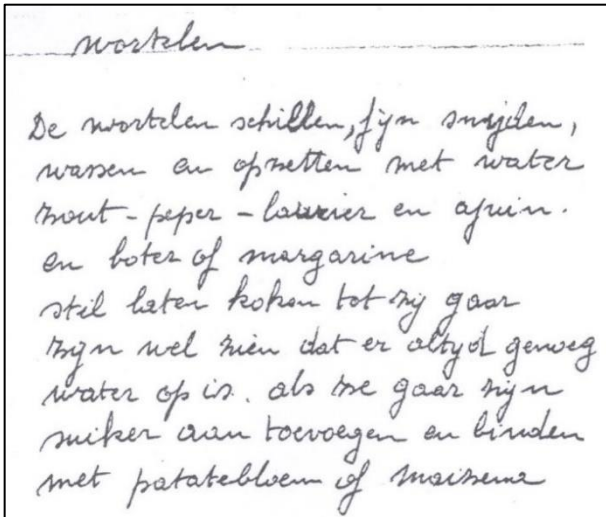 wortelen
De wortelen schillen, fijn snijden,
wassen en opzetten met water
zout - peper - laurier en ajuin.
en boter of margarine
stil laten koken tot zij gaar
zijn wel zien dat er altijd genoeg
water op is. als ze gaar zijn
suiker aan toevoegen en binden
met patatebloem of maizena